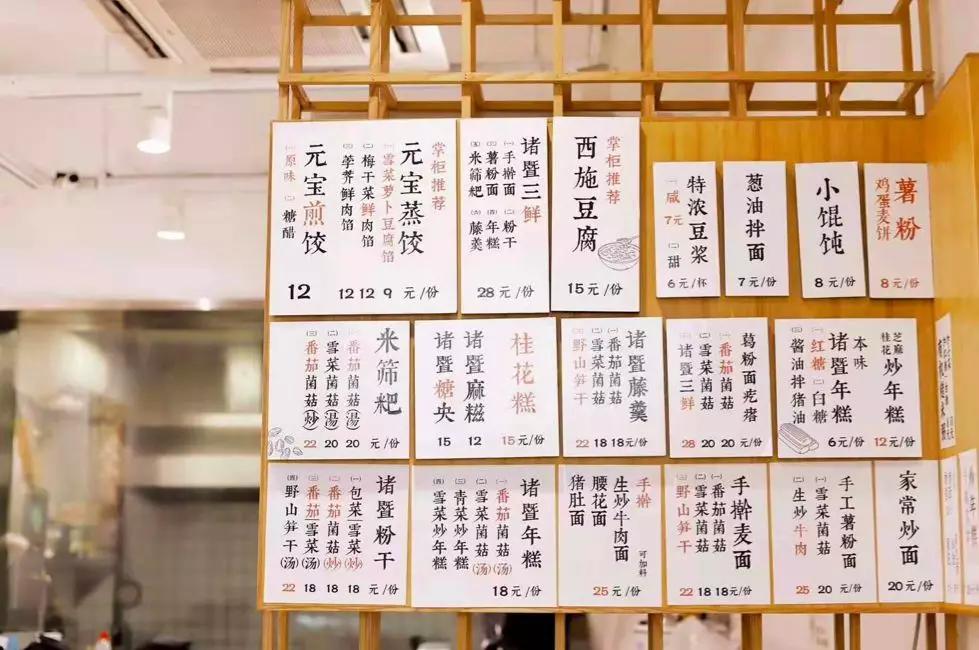 掌柜推荐
元宝蒸饺
㈠雪菜萝卜豆腐馅
㈡梅干菜鲜肉馅
㈢荠荠鲜肉馅
12 12 9 元/份
元宝煎饺
㈠原味 ㈡糖醋
12
诸暨三鲜
㈠手擀面 ㈡粉干
㈢薯粉面 ㈣年糕
㈤米筛粑 ㈥藤羹
28 元/份
掌柜推荐
西施豆腐
15元/份
特浓豆浆
㈠咸 7元 ㈡甜
6元/杯
葱油拌面
7元/份
小馄饨
8元/份
薯粉
鸡蛋麦饼
8元/份
米筛粑
㈠番茄菌菇(汤)
㈡雪菜菌菇(汤)
㈢番茄菌菇(炒)
22 20 20 元/份
桂花糕
诸暨麻糍
诸暨糖央
15 12 15元/份
诸暨藤羹
㈠番茄菌菇
㈡雪菜菌菇
㈢野山笋干
22 18 18元/份
葛粉面疙瘩
㈠番茄菌菇
㈡雪菜菌菇
㈢诸暨三鲜
28 20 20元/份
本味
诸暨年糕
㈠红糖 ㈡白糖
㈢酱油拌猪油
6元/份
芝麻桂花
炒年糕
12元/份
诸暨粉干
㈠包菜雪菜(炒)
㈡番茄菌菇(炒)
㈢番茄雪菜(汤)
㈣野山笋干(汤)
22 18 18 18 元/份
诸暨年糕
㈠番茄菌菇(汤)
㈡雪菜菌菇(汤)
㈢青菜炒年糕
㈣雪菜炒年糕
18元/份
手擀
生炒牛肉面
腰花面
猪肚面
可加料
25元/份
手擀麦面
㈠番茄菌菇
㈡雪菜菌菇
㈢野山笋干
22 18 18元/份
手工薯粉面
㈠雪菜菌菇
㈡生炒牛肉
25 20 元/份
家常炒面
20元/份